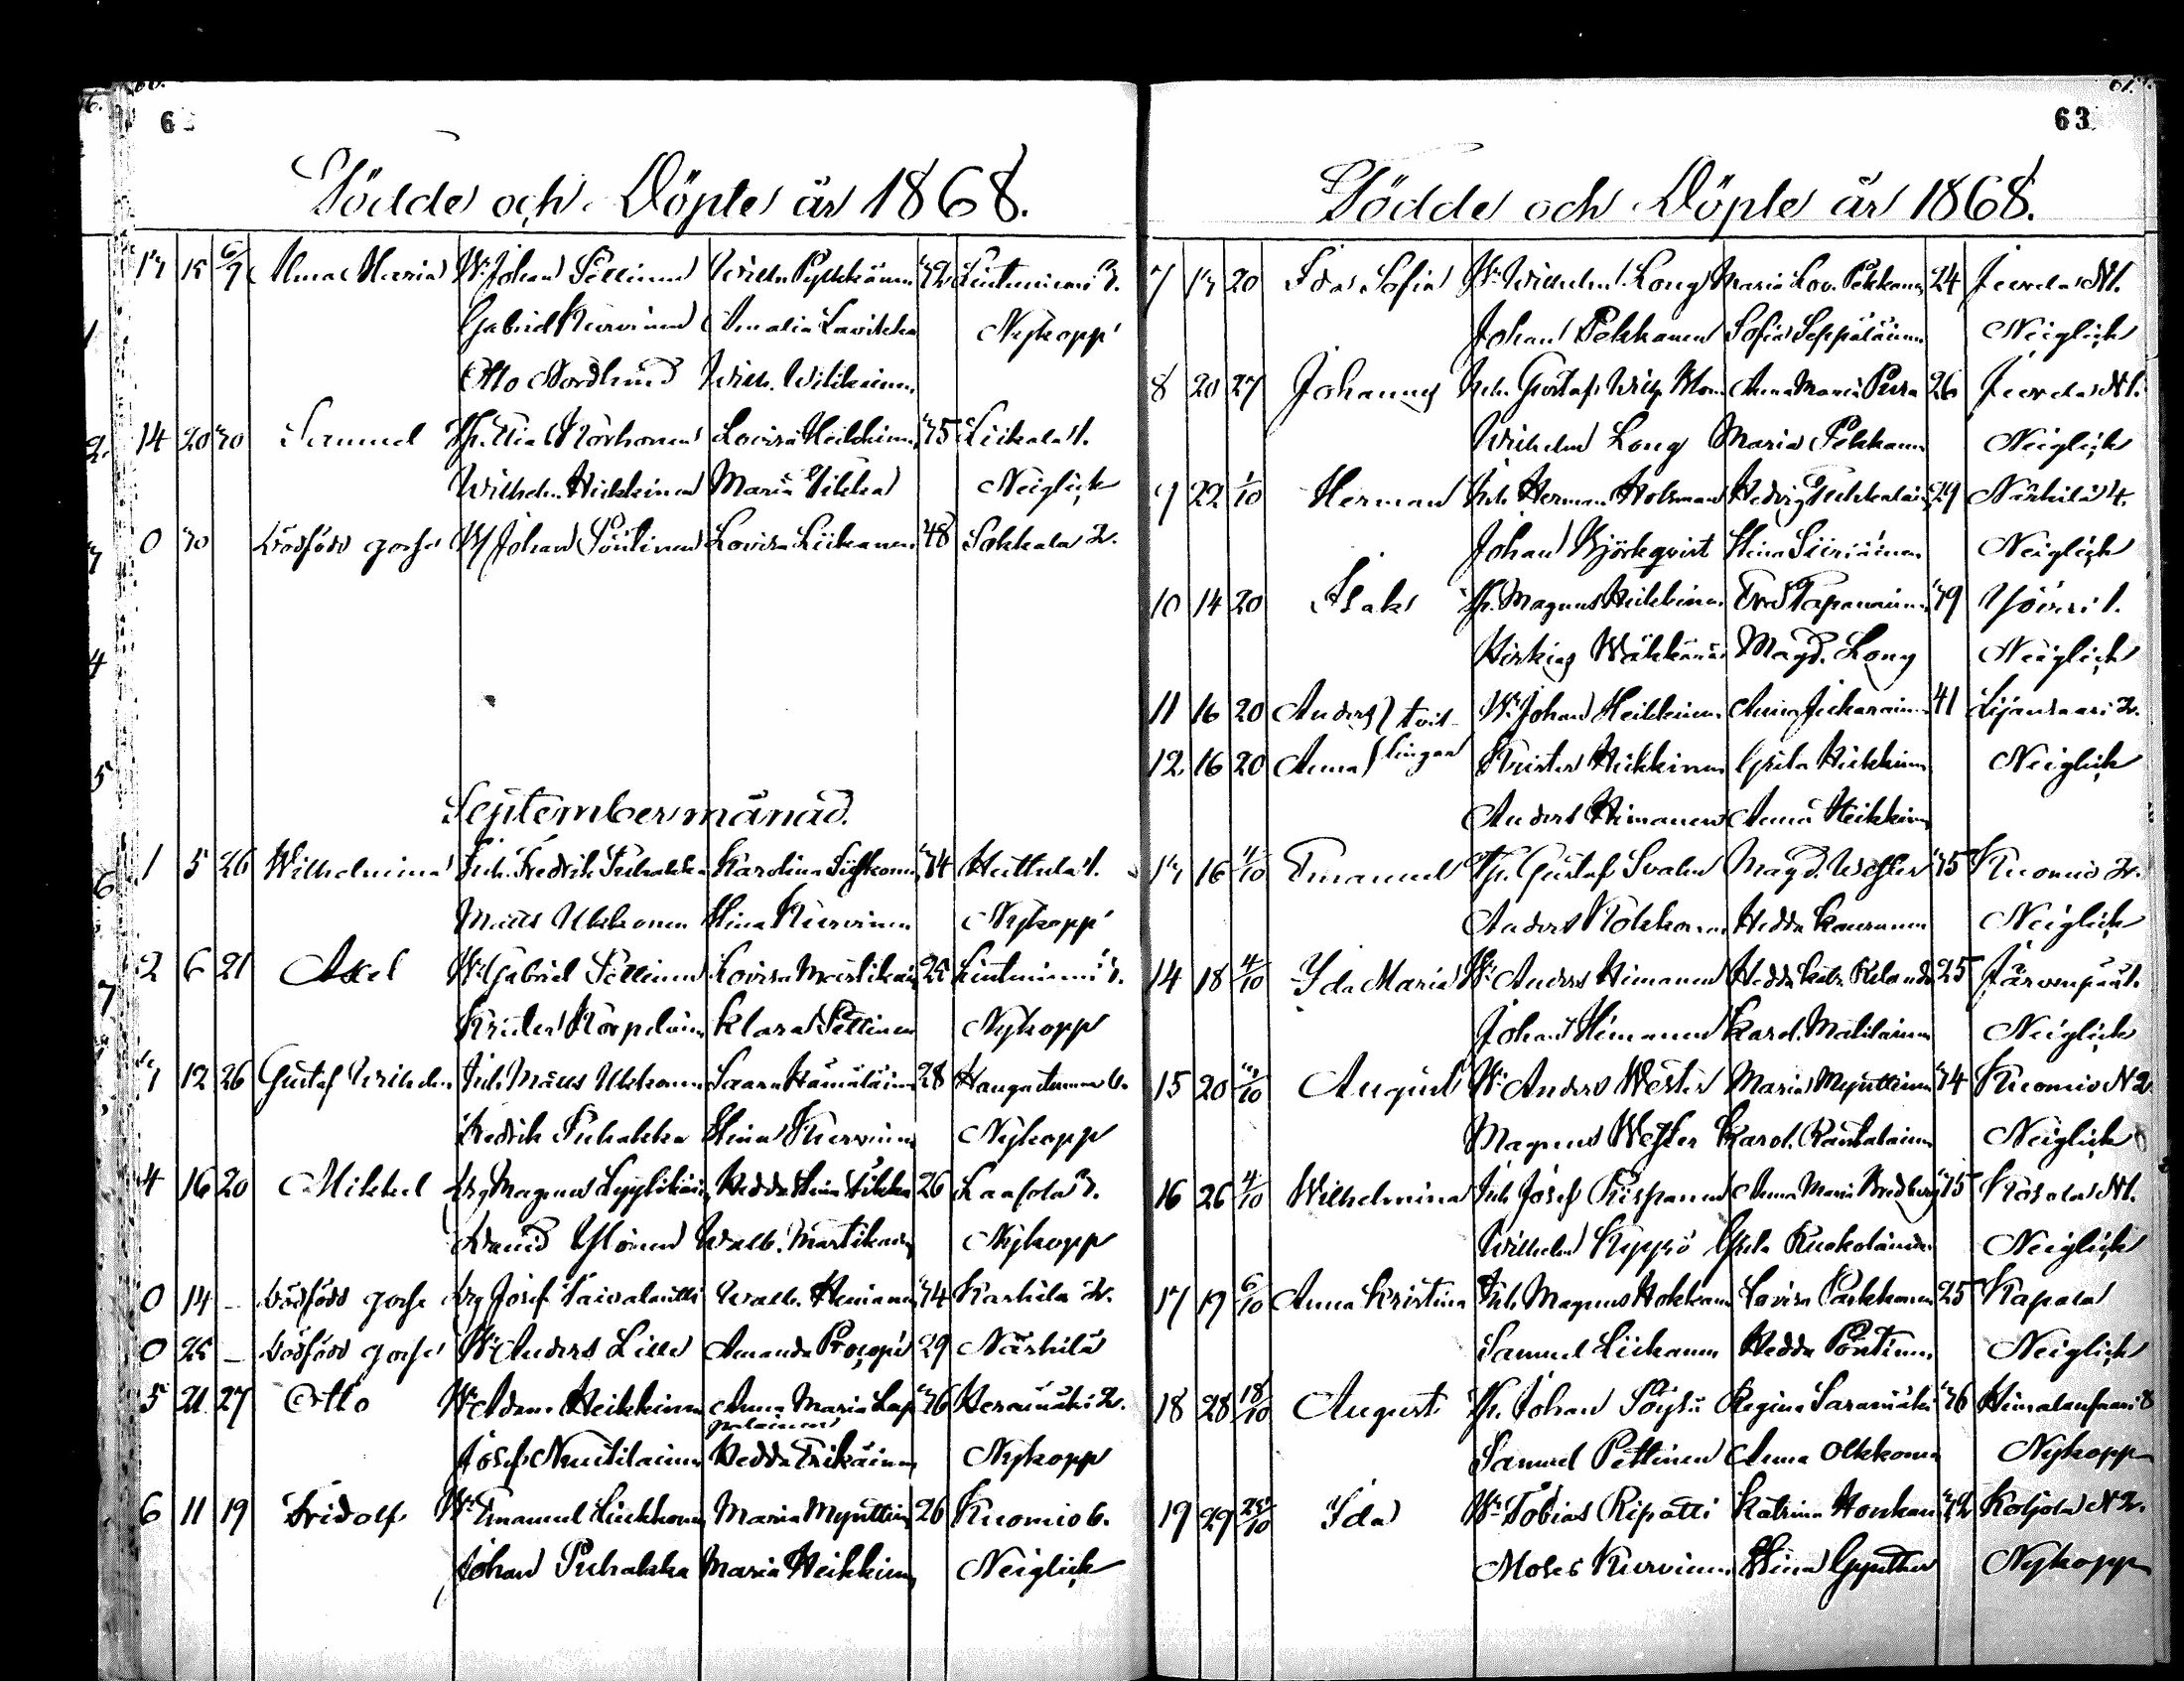 63
Födde och Döpte år 1868.
13 15 6/9 Alma Maria Wr. Johan Pettinen Wilh. Pyykkönen 32 Lintuniemi 3.
Gabriel Kurvinen Amalia Lavikka Nykopp
Otto Nordlund Wilh.
14 20 30 Samuel Th. Elias Korhonen Lovisa Heikkinen 35 Liikala 1.
Wilhelm Heikkinen Maria Tikka Neiglick
0 30 Dödfödd gosse Johan Pöntinen Lovisa Liikanen 48 Sokkala 2.
September månad.
1 5 26 Wilhelmina Inh. Fredrik Puhakka Karolina 34 Huttula 1.
Matts Ukkonen Stina Kurvinen Nykopp
2 6 21 Axel Wr. Gabriel Pettinen Lovisa Martikain 25 Lintuniemi 3.
Krister Klara Pettinen Nykopp
3 12 26 Gustaf Wilhelm Inh. Matts Ukkonen Saara Hämäläinen 28 6.
Fredrik Puhakka Stina Kurvinen Nykopp
4 16 20 Mikkel Drg Magnus Lyytikäin Hedda Stina Tikka 26 3.
David Ylönen Walb. Martikain Nykopp
0 14 – Dödfödd gosse Drg Josef Taivalantti Walb. Heiman 34 Karhula 2.
0 25 – Dödfödd gosse Wr. Anders Lille Amanda Procopé 29 Närhilä
5 21 27 Otto Wr. Adam Heikkinen Anna Maria Lap 36 2.
palainen
Josef Nuutilainen Hedda Nykopp
6 11 19 Fridolf Wr. Emanuel Liukkonen Maria Mynttinen 26 Kuomio 6.
Johan Puhakka Maria Heikkinen Neiglick
Födde och Döpte år 1868.
7 13 20 Ida Sofia Wr. Wilhelm Long Maria Lov. Pekkanen 24 Jeerola N 1.
Johan Pekkanen Sofia Seppäläinen Neiglick
8 20 27 Johannes Inh. Gustaf Wilh. Anna Maria Pura 26 Jeerola N 1.
Wilhelm Long Maria Pekkanen Neiglick
9 22 1/10 Herman Inh. Herman Holsman Hedvig 29 Närhilä 4.
Johan Björkqvist Stina Siiriäinen Neiglick
10 14 20 Isak Th. Magnus Heikkinen Eva Tapanainen 39 1.
Magd. Long Neiglick
11 16 20 Anders } tvil- Wr. Johan Heikkinen Anna 41 Lijansaari 2.
12 16 20 Anna } lingar Krister Heikkinen Greta Heikkinen Neiglick
Anders Himanen Anna Heikkinen
13 16 4/10 Emanuel Th. Gustaf Svalin Magd. Wester 35 Kuomio 2.
Anders Kokkonen Hedda Neiglick
14 18 4/10 Ida Maria Wr. Anders Himanen Hedda Katr. 25 Järvenpää 1.
Johan Himanen Karol. Matilainen Neiglick
15 20 3/10 August Wr. Anders Wester Maria Mynttinen 34 Kuomio N 2
Magnus Wester Karol. Rautalainen Neiglick
16 26 4/10 Wilhelmina Inh. Josef Anna Maria Bredberg 35 N 1.
Wilhelm Greta Neiglick
17 19 6/10 Anna Kristina Inh. Magnus Hokkanen Lovisa Parkkonen 25 Kapala
Samuel Liikanen Hedda Pöntinen Neiglick
18 28 18/10 August Th. Johan Pöysti Regina Saramäki 36 Himalansaari 8
Samuel Pettinen Anna Olkkonen Nykopp
19 29 25/10 Ida Wr. Tobias Ripatti Katrina Honkan 32 Koljola N 2.
Moses Kurvinen Stina Gynther Nykopp